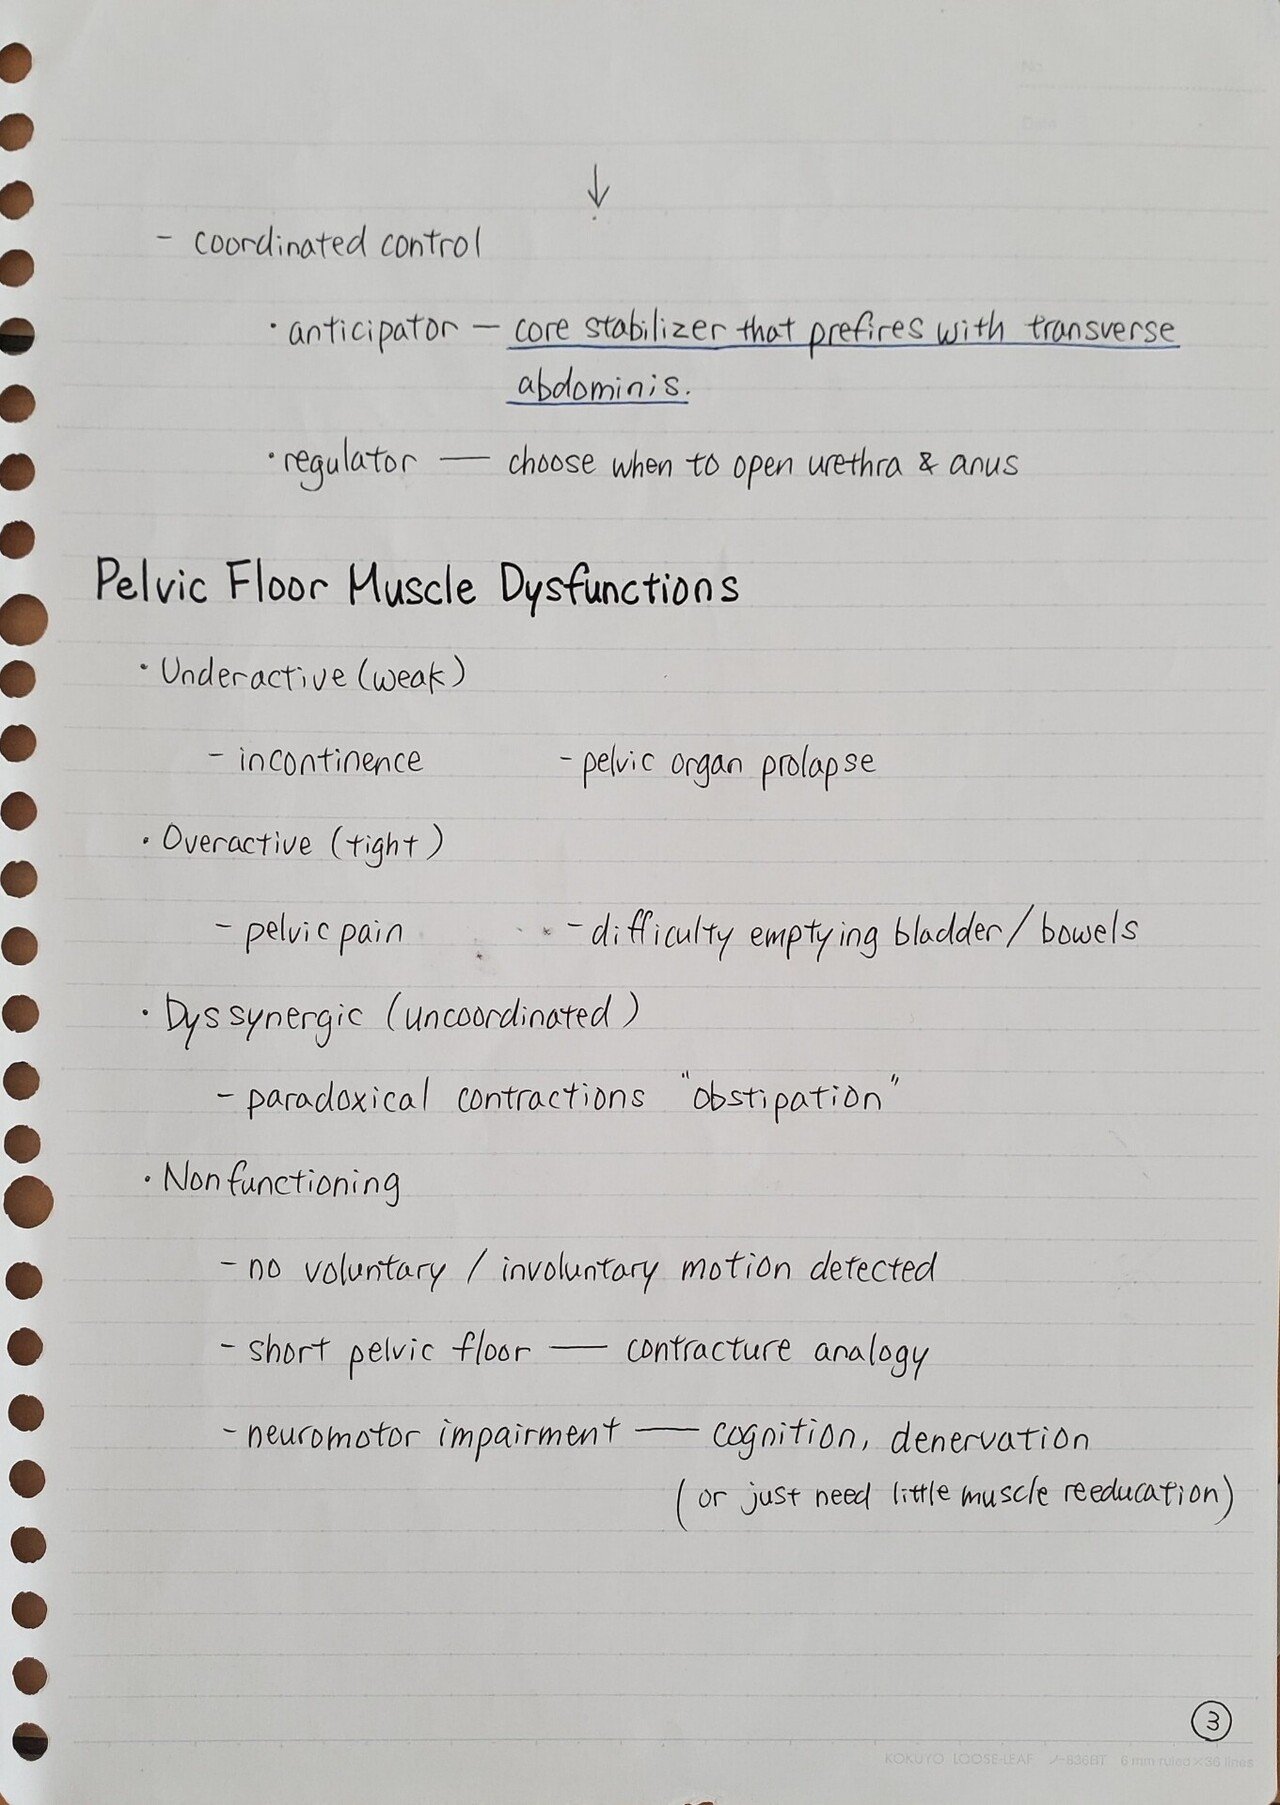 ↓
- coordinated control
· anticipator — core stabilizer that prefires with transverse
abdominis.
· regulator — choose when to open urethra & anus
Pelvic Floor Muscle Dysfunctions
· Underactive (weak)
- incontinence - pelvic organ prolapse
· Overactive (tight)
- pelvic pain - difficulty emptying bladder / bowels
· Dyssynergic (uncoordinated)
- paradoxical contractions "obstipation"
· Nonfunctioning
- no voluntary / involuntary motion detected
- short pelvic floor — contracture analogy
- neuromotor impairment — cognition, denervation
(or just need little muscle reeducation)
3
KOKUYO LOOSE-LEAF ノ-836BT 6 mm ruled×36 lines